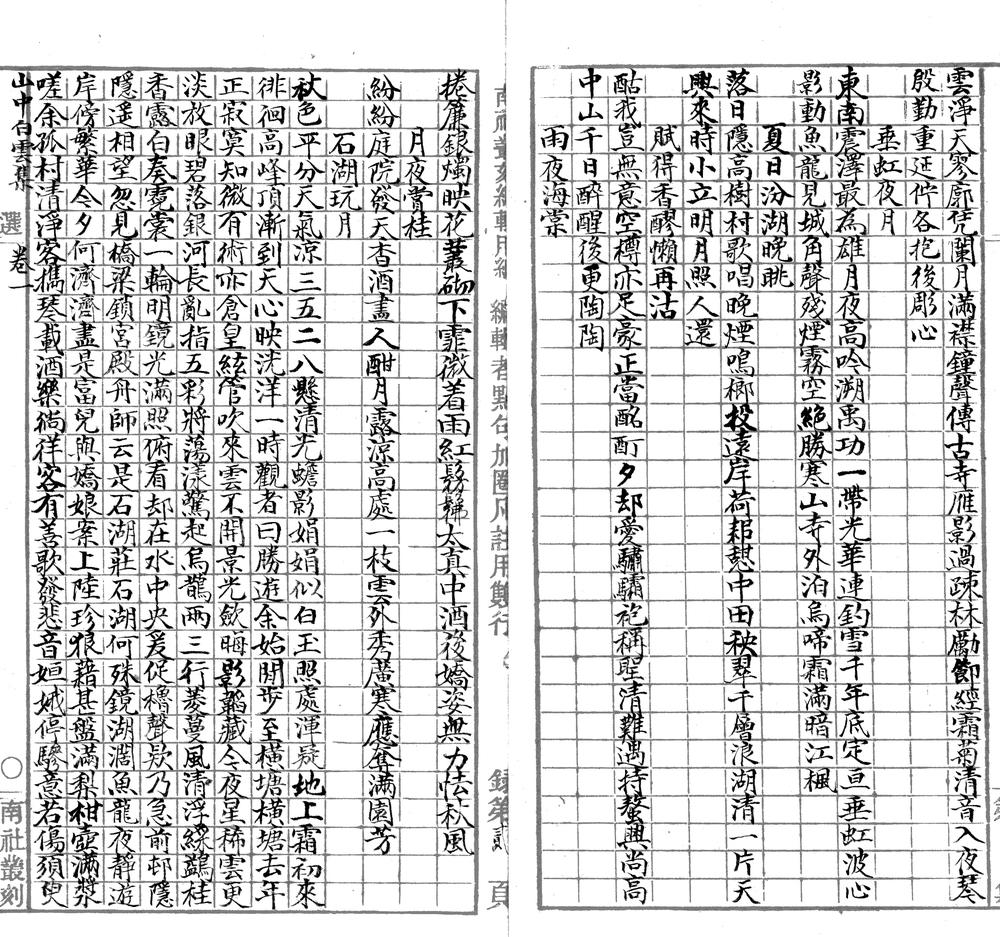 雲淨天寥廓凭闌月滿襟鐘聲傳古寺雁影過疎林勵節經霜菊清音入夜琴
殷勤重延佇各抱後彫心
垂虹夜月
東南震澤最為雄月夜高吟溯禹功一帶光華連釣雪千年底定亘垂虹波心
影動魚龍見城角聲殘煙霧空絕勝寒山寺外泊烏啼霜滿暗江楓
夏日汾湖晚眺
落日隱高樹村歌唱晚煙鳴榔投遠岸荷耜憇中田秧翠千層浪湖清一片天
興來時小立明月照人還
賦得香醪懶再沽
酤我豈無意空樽亦足豪正當酩酊夕却愛驌驦袍稱聖清難遇持螯興尚高
中山千日醉醒後更陶陶
雨夜海棠
捲簾銀燭映花叢砌下霏微着雨紅鬆髻太真中酒後嬌姿無力怯秋風
月夜賞桂
紛紛庭院發天香酒畵人酣月露涼高處一枝雲外秀廣寒應奪滿園芳
石湖玩月
秋色平分天氣涼三五二八懸清光蟾影娟娟似白玉照處渾疑地上霜初來
徘徊高峰頂漸到天心映洸洋一時觀者曰勝遊余始閒步至橫塘橫塘去年
正寂寞知微有術亦倉皇絃管吹來雲不開景光歛晦影韜藏今夜星稀雲更
淡放眼碧落銀河長亂指五彩將蕩漾驚起烏鵲兩三行菱蔓風清浮綠鷁桂
香露白奏霓裳一輪明鏡光滿照俯看却在水中央爰促櫓聲欸乃急前邨隱
隱遥相望忽見橋梁鎖宮殿舟師云是石湖莊石湖何殊鏡湖濶魚龍夜靜遊
岸傍繁華今夕何濟濟盡是富兒與嬌娘案上陸珍狼藉甚盤滿梨柑壺滿漿
嗟余孤村清淨客攜琴載酒樂徜徉客有善歌發悲音姮娥停驂意若傷須臾
山中白雲集 選 卷一 〇 南社叢刻
南社叢刻編輯用紙 編輯者點句加圈凡註用雙行 錄第 貳 頁